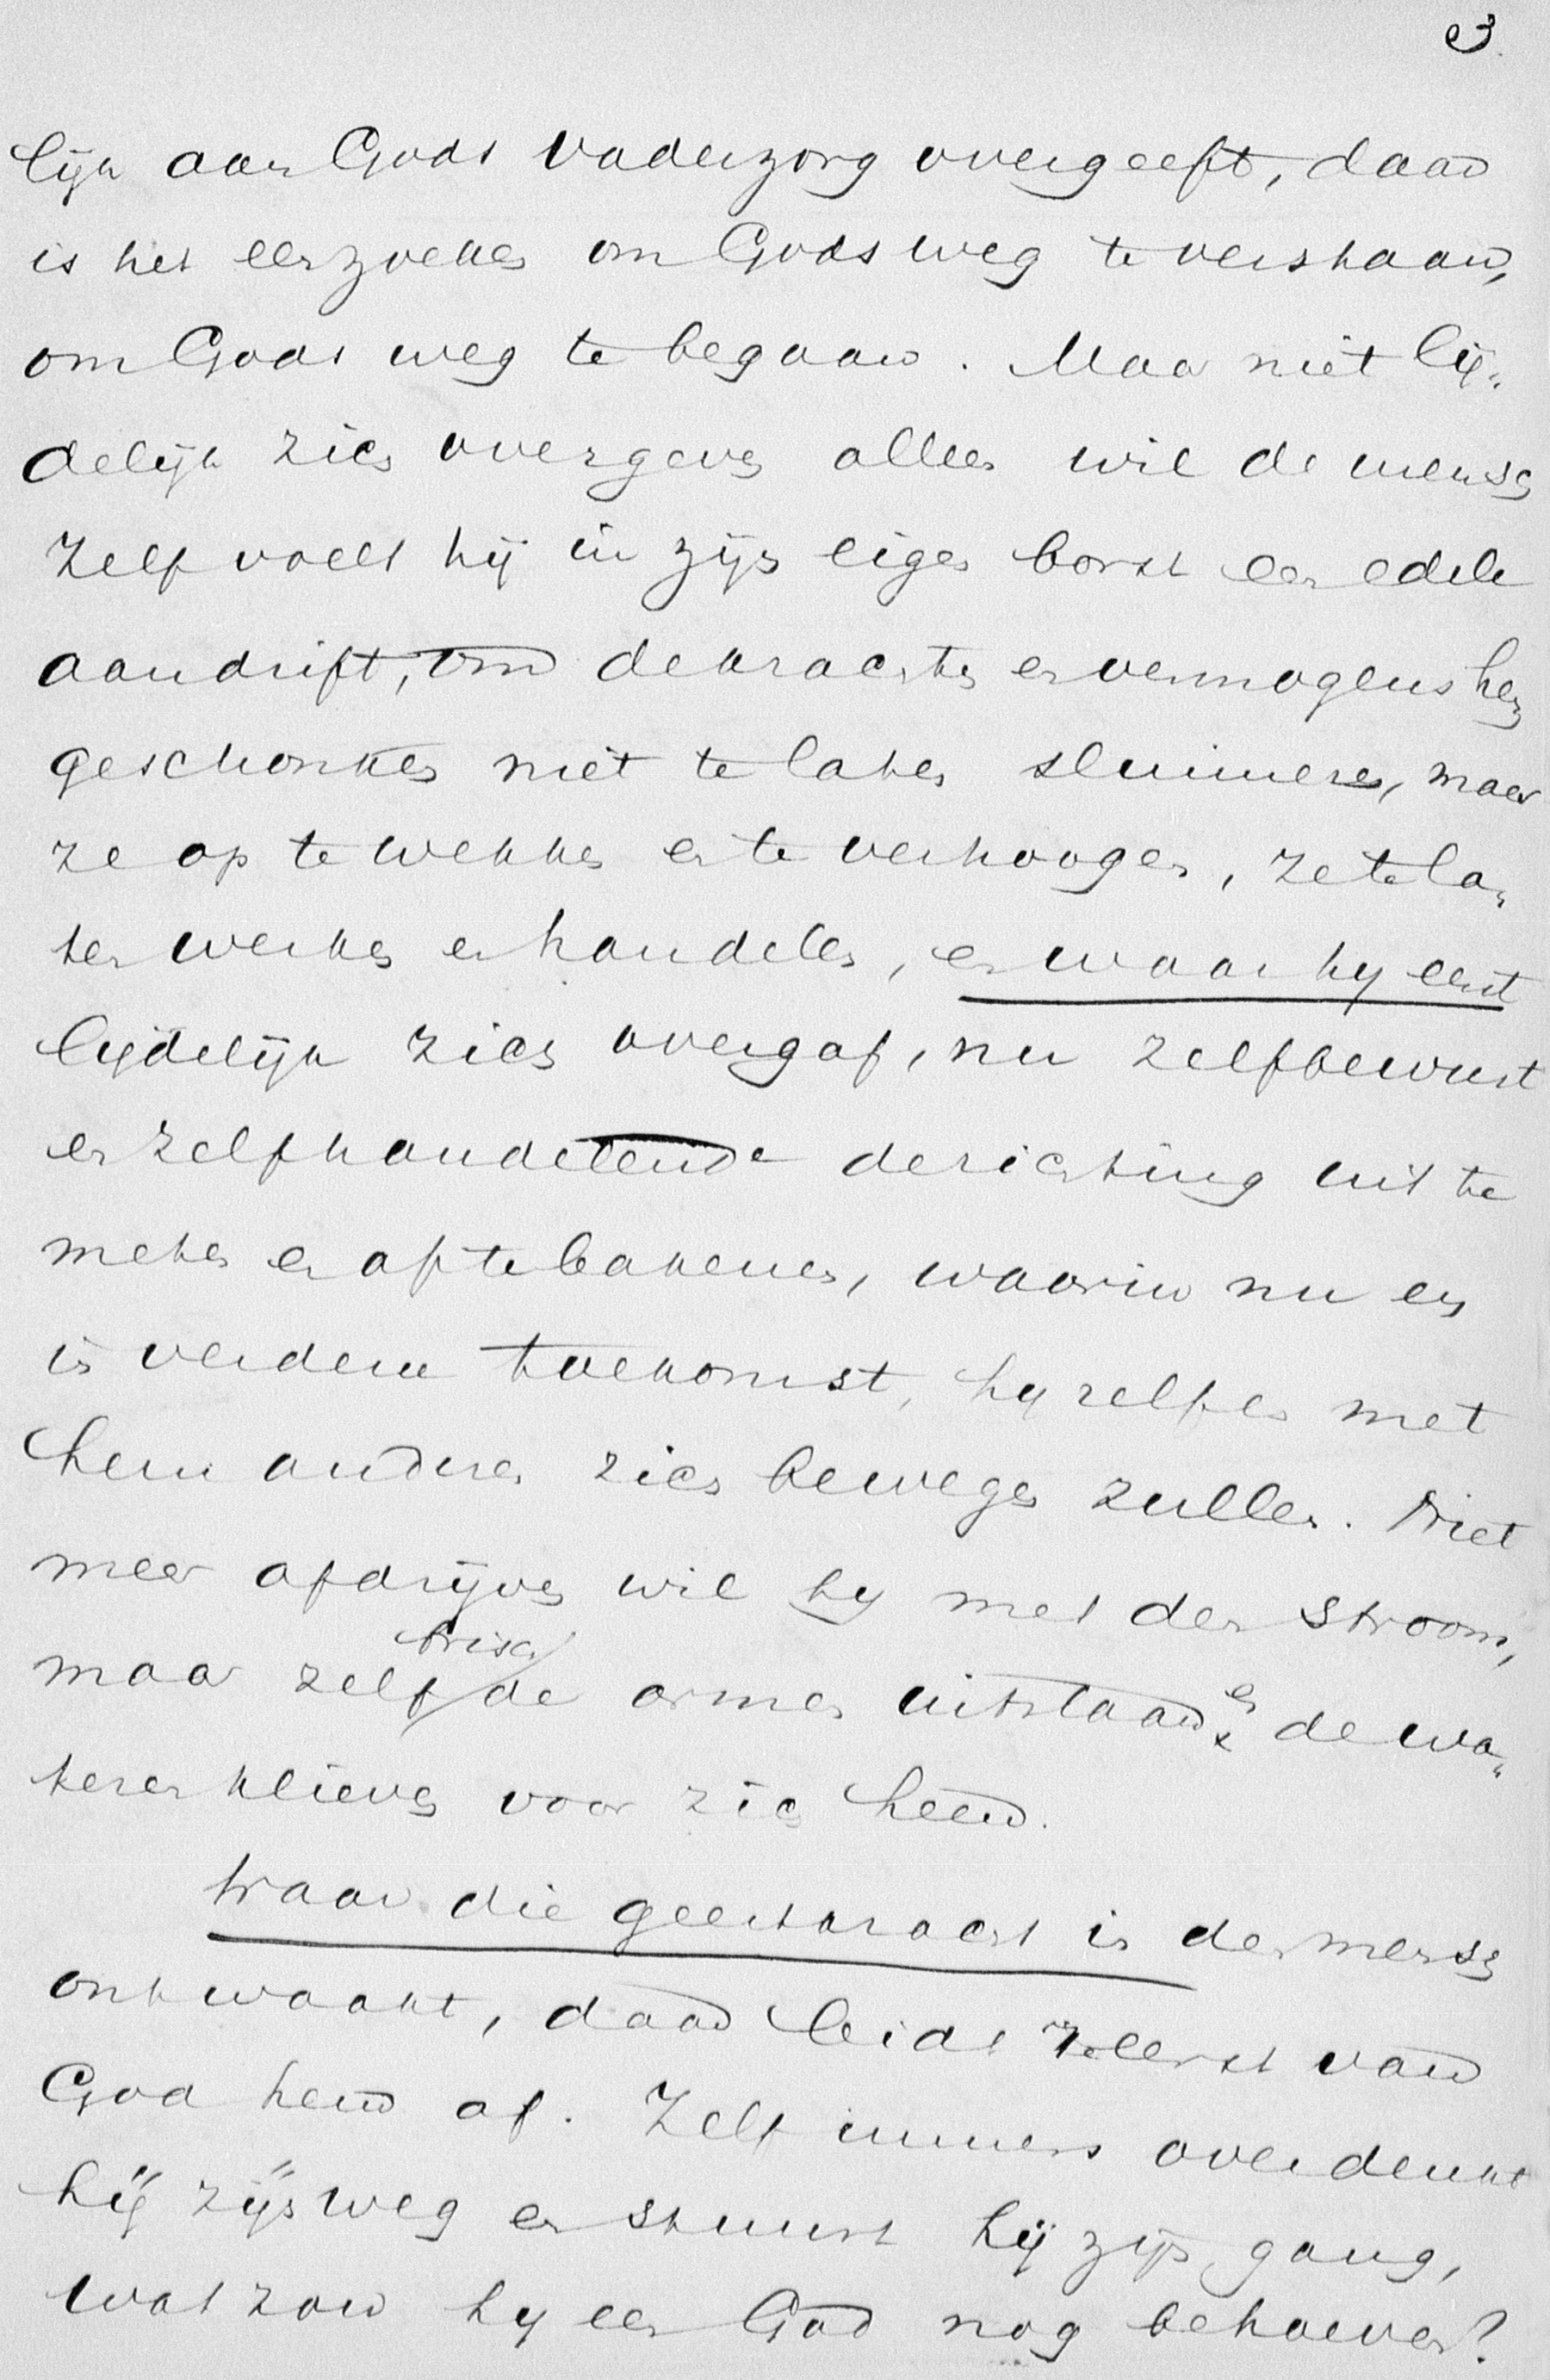 3.
lijk aan Gods Vaderzorg overgeeft, daar
is het een zoeken om Gods weg te verstaan,
om Gods weg te begaan. Maar niet lij„
delijk zich overgeven alleen wil de mensch
Zelf voelt hij in zijn eigen borst een edele
aandrift, om de krachten en vermogens hem
geschonken niet te laten sluimeren, maar
ze op te wekken en te verhoogen, ze te la„
ten werken en handelen, en waar hij eerst
lijdelijk zich overgaf, nu zelfbewust
en zelfhandelende de richting uit te
meten en af te bakenen, waarin nu en
in verdere toekomst, hij zelf en met
hem anderen zich bewegen zullen. Niet
meer afdrijven wil hij met den stroom,
maar zelf frisch de armen uitslaan en de wa„
teren klieven voor zich heen.
Waar die geestkracht in den mensch
ontwaakt, daar leidt ze eerst van
God hem af. Zelf immers overdenkt
hij zijn weg en stuurt hij zijn gang,
wat zou hij een God nog behoeven?